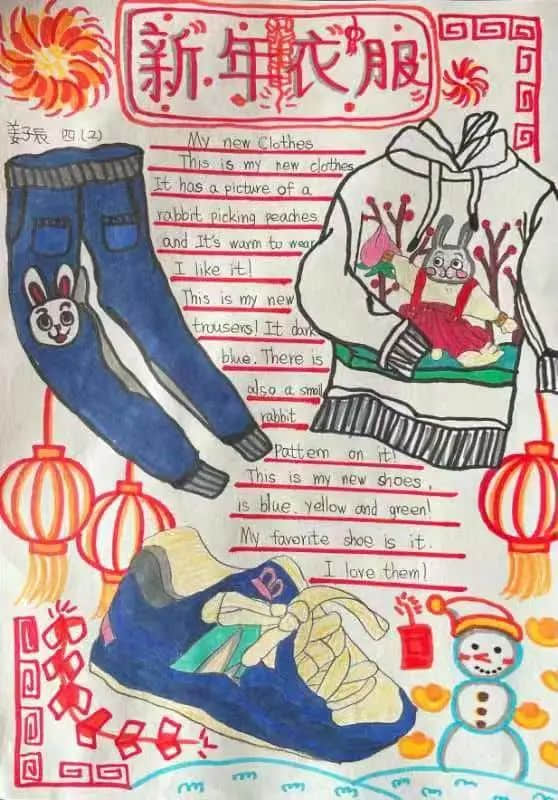 新年衣服
姜子辰 四(2)
My new Clothes
This is my new clothes
It has a picture of a
rabbit picking peaches
and It's warm to wear
I like it!
This is my new
trousers! It dark
blue. There is
also a small
rabbit
Pattem on it!
This is my new shoes,
is blue. yellow and green!
My favorite shoe is it.
I love them!